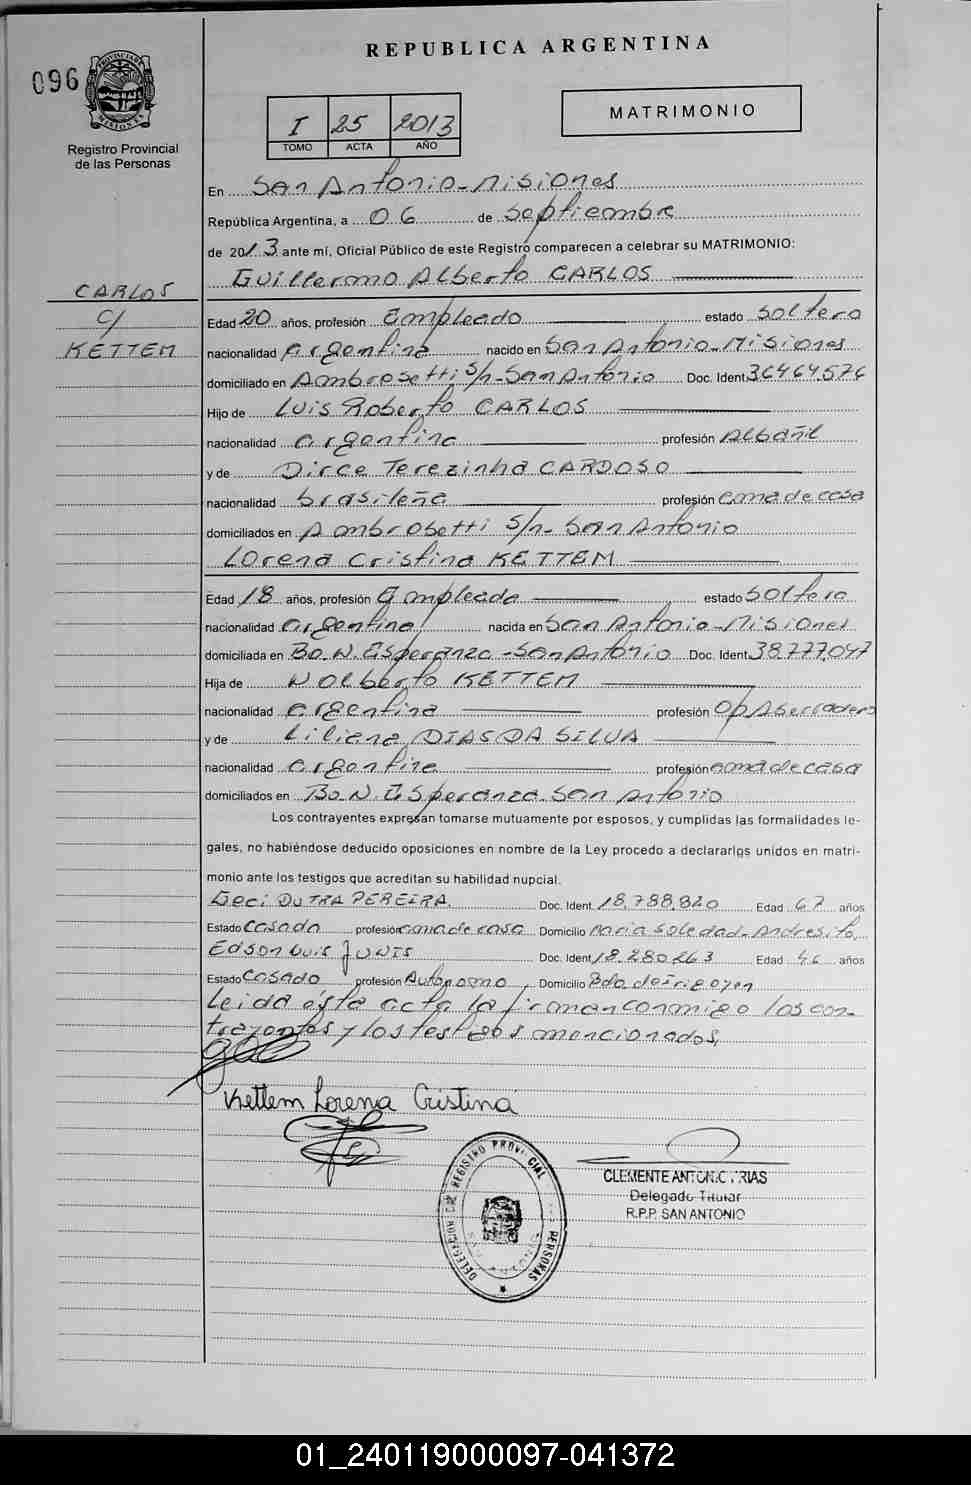 REPUBLICA ARGENTINA
096
PROVINCIA DE MISIONES
Registro Provincial
de las Personas
I 25 2013
TOMO ACTA AÑO
MATRIMONIO
En San Antonio - Misiones
República Argentina, a 06 de Septiembre
de 2013 ante mí, Oficial Público de este Registro comparecen a celebrar su MATRIMONIO:
Guillermo Alberto CARLOS
CARLOS
c/
KETTEM
Edad 20 años, profesión Empleado estado Soltero
nacionalidad argentina nacido en San Antonio - Misiones
domiciliado en Ambrosetti s/n - San Antonio Doc. Ident 36464576
Hijo de Luis Roberto CARLOS
nacionalidad argentina profesión Albañil
y de Dirce Terezinha CARDOSO
nacionalidad brasileña profesión ama de casa
domiciliados en Ambrosetti s/n - San Antonio
Lorena Cristina KETTEM
Edad 18 años, profesión Empleada estado Soltera
nacionalidad argentina nacida en San Antonio - Misiones
domiciliada en Bo. N. Esperanza - San Antonio Doc. Ident 38.777.047
Hija de Nolberto KETTEM
nacionalidad argentina profesión Op Aserradero
y de Liliana DIAS DA SILVA
nacionalidad argentina profesión ama de casa
domiciliados en Bo. N. Esperanza - San Antonio
Los contrayentes expresan tomarse mutuamente por esposos, y cumplidas las formalidades le-
gales, no habiéndose deducido oposiciones en nombre de la Ley procedo a declararlos unidos en matri-
monio ante los testigos que acreditan su habilidad nupcial.
Geci DUTRA PEREIRA Doc. Ident 18.788.820 Edad 67 años
Estado Casada profesión ama de casa Domicilio María Soledad - Andresito
Edson Luis JUNIS Doc. Ident 18.280.263 Edad 46 años
Estado Casado profesión Autónomo Domicilio Bdo. de Irigoyen
Leída ésta acta la firman conmigo los con-
trayentes y los testigos mencionados.
Kettem Lorena Cristina
REGISTRO PROVINCIAL
PERSONAS
CLEMENTE ANTONIO
Delegado Titular
R.P.P. SAN ANTONIO
01_240119000097-041372